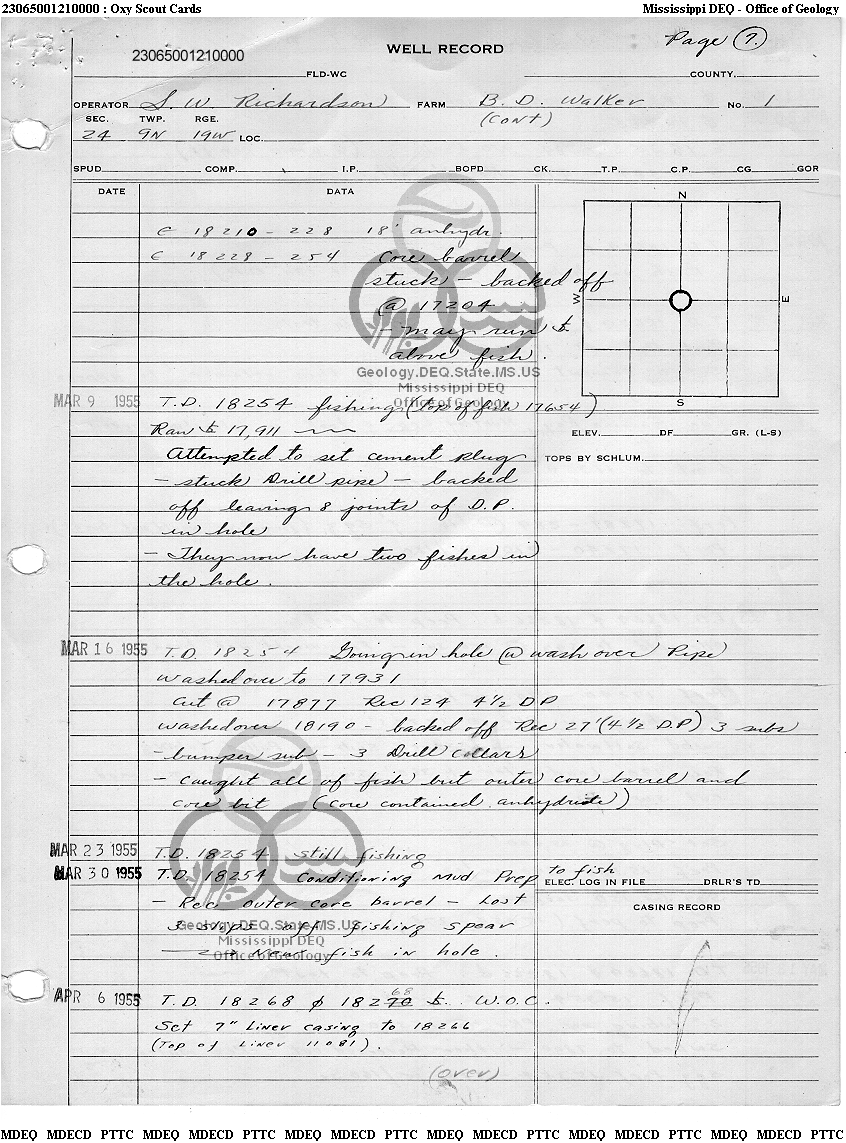 23065001210000 : Oxy Scout Cards
Mississippi DEQ - Office of Geology
Page 7.
23065001210000
WELL RECORD
FLD-WC
COUNTY
OPERATOR S. W. Richardson FARM B. D. Walker No. 1
(CONT)
SEC. TWP. RGE.
24 9N 19W LOC.
SPUD COMP. I.P. BOPD CK. T.P. C.P. CG GOR
DATE DATA
N
W
E
S
C 18210 - 228 18' anhydr.
C 18228 - 254 Core barrel
stuck - backed off
@ 17204
- may run
above fish.
Geology.DEQ.State.MS.US
Mississippi DEQ
Office of Geology
MAR 9 1955 T.D. 18254 fishing (top of fish 17654)
Ran 17,911
Attempted to set cement plug
- stuck Drill pipe - backed
off leaving 8 joints of D.P.
in hole
- They now have two fishes in
the hole.
ELEV. DF. GR. (L-S)
TOPS BY SCHLUM.
MAR 16 1955 T.D. 18254 Going in hole w wash over Pipe
washed over to 17931
Cut @ 17877 Rec 124 4½ DP
washed over 18190 - backed off Rec 27' (4½ DP) 3 subs
- bumper sub - 3 Drill collars
- caught all of fish but outer core barrel and
core bit (core contained anhydrite)
MAR 23 1955 T.D. 18254 still fishing
MAR 30 1955 T.D. 18254 Conditioning Mud Prep to fish
- Rec outer core barrel - Lost
3 slips off fishing spear
New fish in hole.
Geology.DEQ.State.MS.US
Mississippi DEQ
Office of Geology
ELEC. LOG IN FILE DRLR'S TD
CASING RECORD
APR 6 1955 T.D. 18268 φ 18270 68 W.O.C.
Set 7" Liner casing to 18266
(Top of Liner 11081).
(over)
MDEQ MDECD PTTC MDEQ MDECD PTTC MDEQ MDECD PTTC MDEQ MDECD PTTC MDEQ MDECD PTTC MDEQ MDECD PTTC